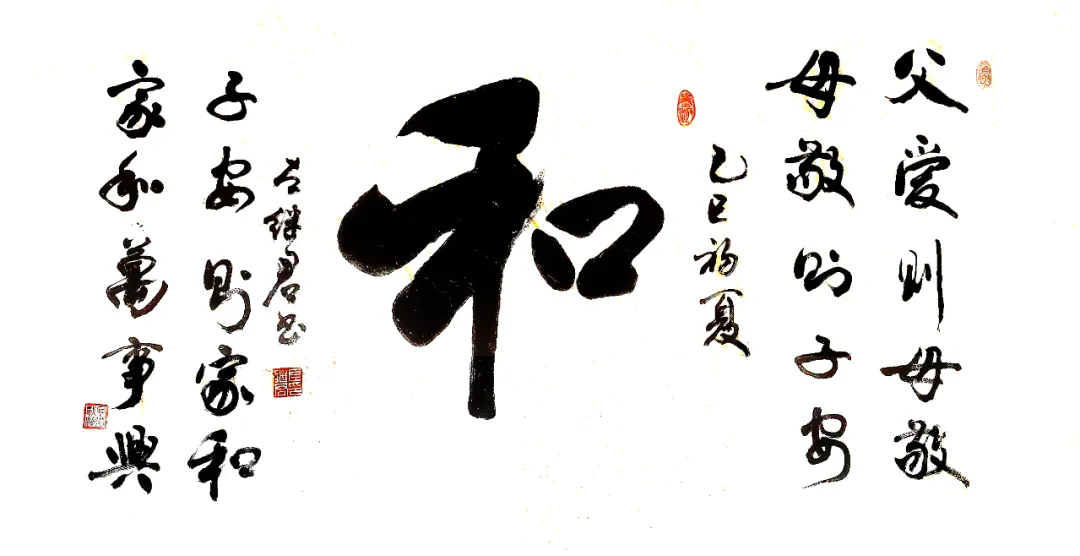 父爱则母敬
母敬则子安
乙巳初夏
和
继君书
子安则家和
家和萬事興